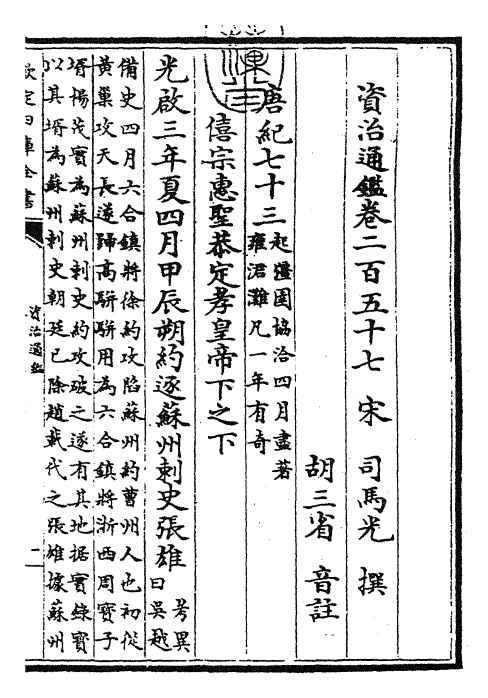 資治通鑑卷二百五十七 宋 司馬光 撰
胡三省 音註
唐紀七十三 起彊圉協洽四月盡著
雍涒灘凡一年有奇
僖宗惠聖恭定孝皇帝下之下
光啟三年夏四月甲辰朔約逐蘇州刺史張雄 考異
曰吳越
備史四月六合鎮將徐約攻陷蘇州約曹州人也初從
黃巢攻天長遂歸高駢駢用為六合鎮將浙西周寶子
壻楊茂實為蘇州刺史約攻破之遂有其地据實錄寶
以其壻為蘇州刺史朝廷已除趙載代之張雄據蘇州
欽定四庫全書
資治通鑑
一